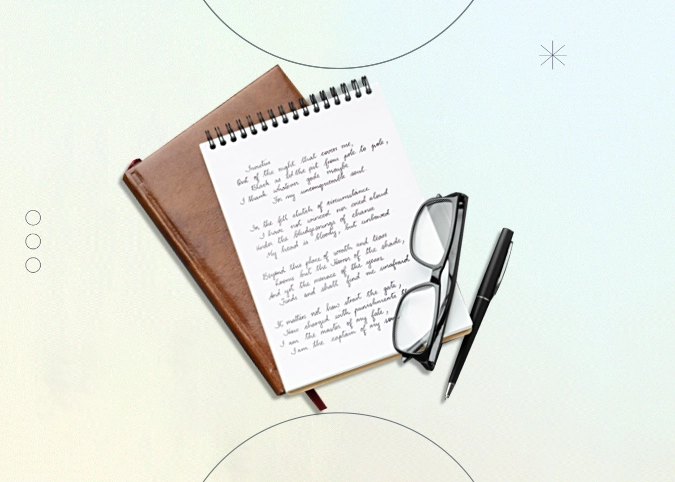 Invictus
Out of the night that covers me,
Black as the pit from pole to pole,
I thank whatever gods maybe
For my unconquerable soul
In the fell clutch of circumstance
I have not winced nor cried aloud
Under the bludgeonings of chance
My head is bloody, but unbowed
Beyond this place of wrath and tears
Looms but the Horror of the shade,
And yet the menace of the years
Finds and shall find me unafraid
It matters not how strait the gate,
How charged with punishments
I am the master of my fate,
I am the captain of my